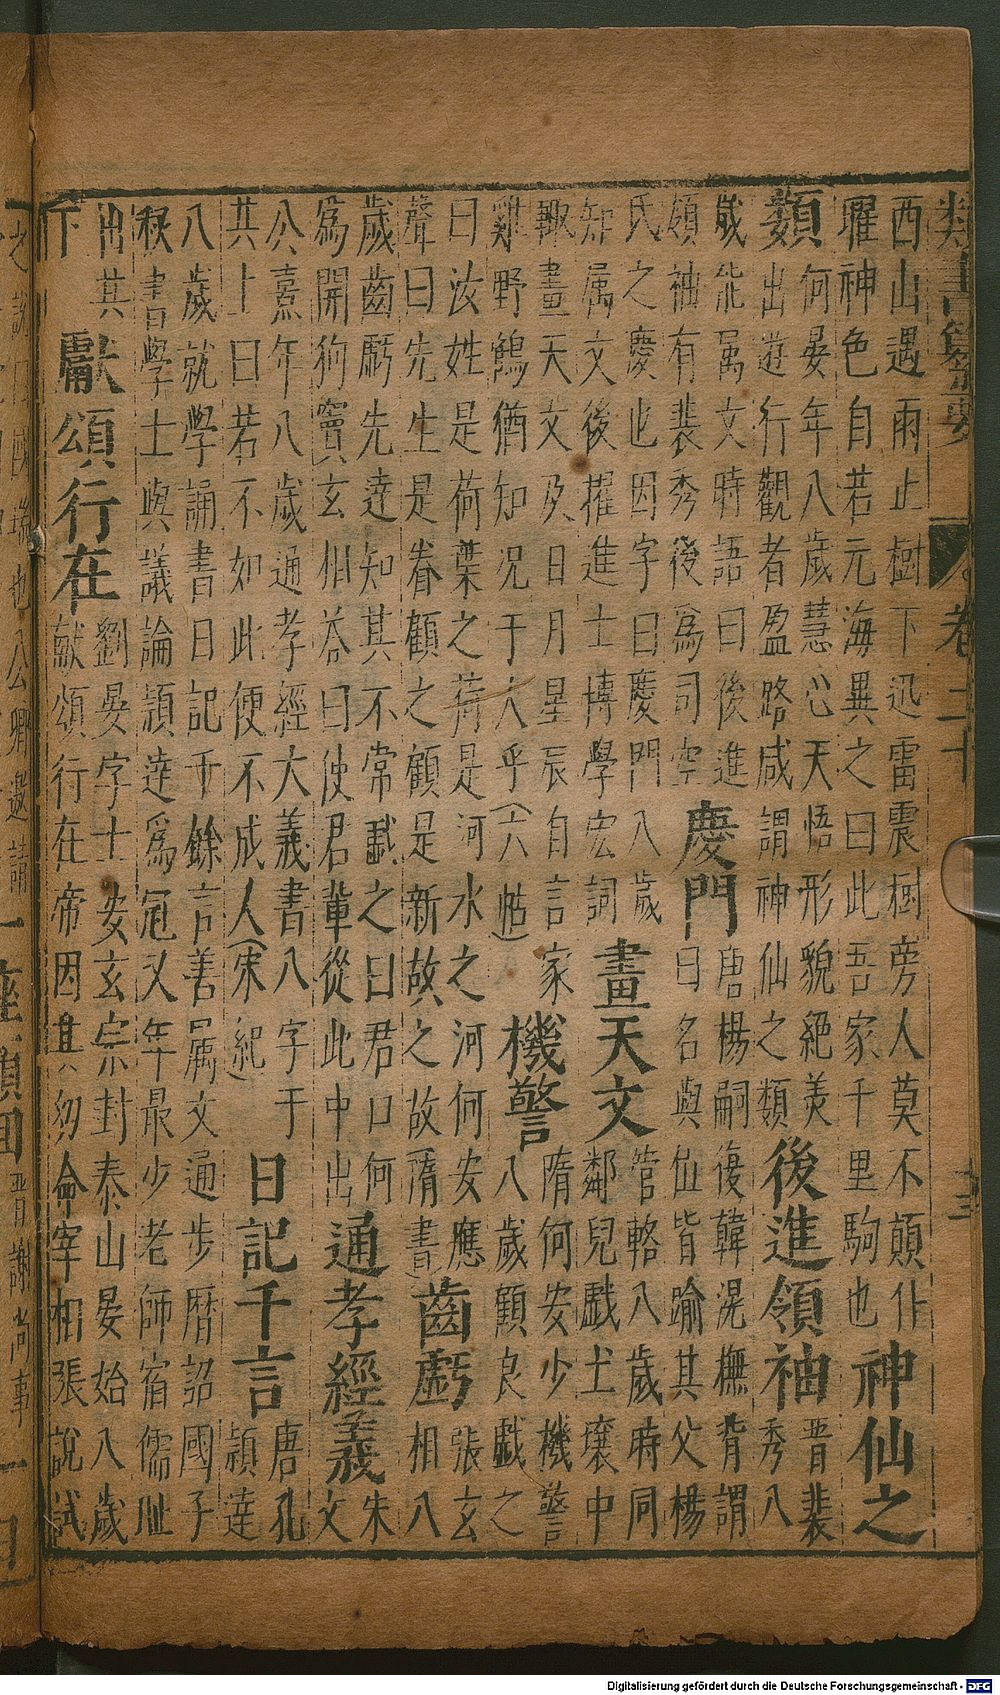 類書纂要 卷二十 三
西山遇雨止樹下迅雷震樹旁人莫不顛仆
曜神色自若元海異之曰此吾家千里駒也
神仙之
類
何晏年八歲慧心天悟形貌絶美
出遊行觀者盈路咸謂神仙之類
後進領袖
晉裴
秀八
歲能属文時語曰後進
領袖有裴秀後為司空
慶門
唐楊嗣復韓滉撫背謂
曰名與位皆踰其父楊
氏之慶也因字曰慶門八歲
知属文後擢進士博學宏詞
畫天文
管輅八歲時同
鄰兒戲土壤中
輙畫天文及日月星辰自言家
雞野鶴猶知況于人乎(六帖)
機警
隋何安少機警
八歲顧良戲之
曰汝姓是荷葉之荷是河水之河何安應
聲曰先生是眷顧之顧是新故之故(隋書)
齒虧
張玄
相八
歲齒虧先逹知其不常戱之曰君口何
為開狗竇玄相答曰使君輩從此中出
通孝經義
朱
文
公熹年八歲通孝經大義書八字于
其上曰若不如此便不成人(宋紀)
日記千言
唐孔
穎逹
八歲就學誦書日記千餘言善属文通步曆詔國子
秘書學士與議論穎逹為冠又年最少老師宿儒耻
出其
下
獻頌行在
劉晏字士安玄宗封泰山晏始八歲
獻頌行在帝因其幼命宰相張說試
也八公卿邀請
一座顏回
晉謝尚事
Digitalisierung gefördert durch die Deutsche Forschungsgemeinschaft - DFG